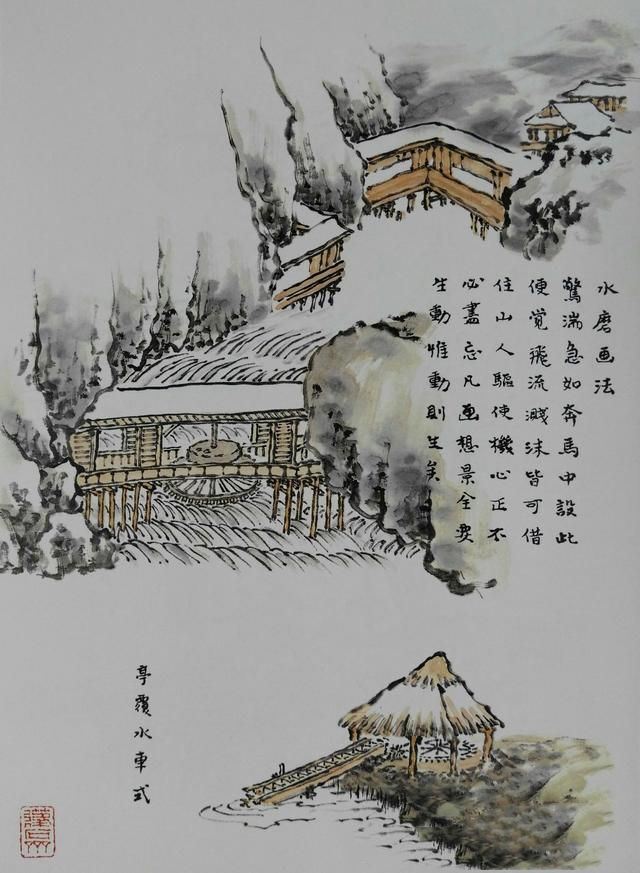 水磨画法
驚湍急如奔馬中設此
便覚飛流濺沫皆可借
住山人驅使機心正不
必盡忘凡画想景全要
生動惟動則生矣
亭覆水車式